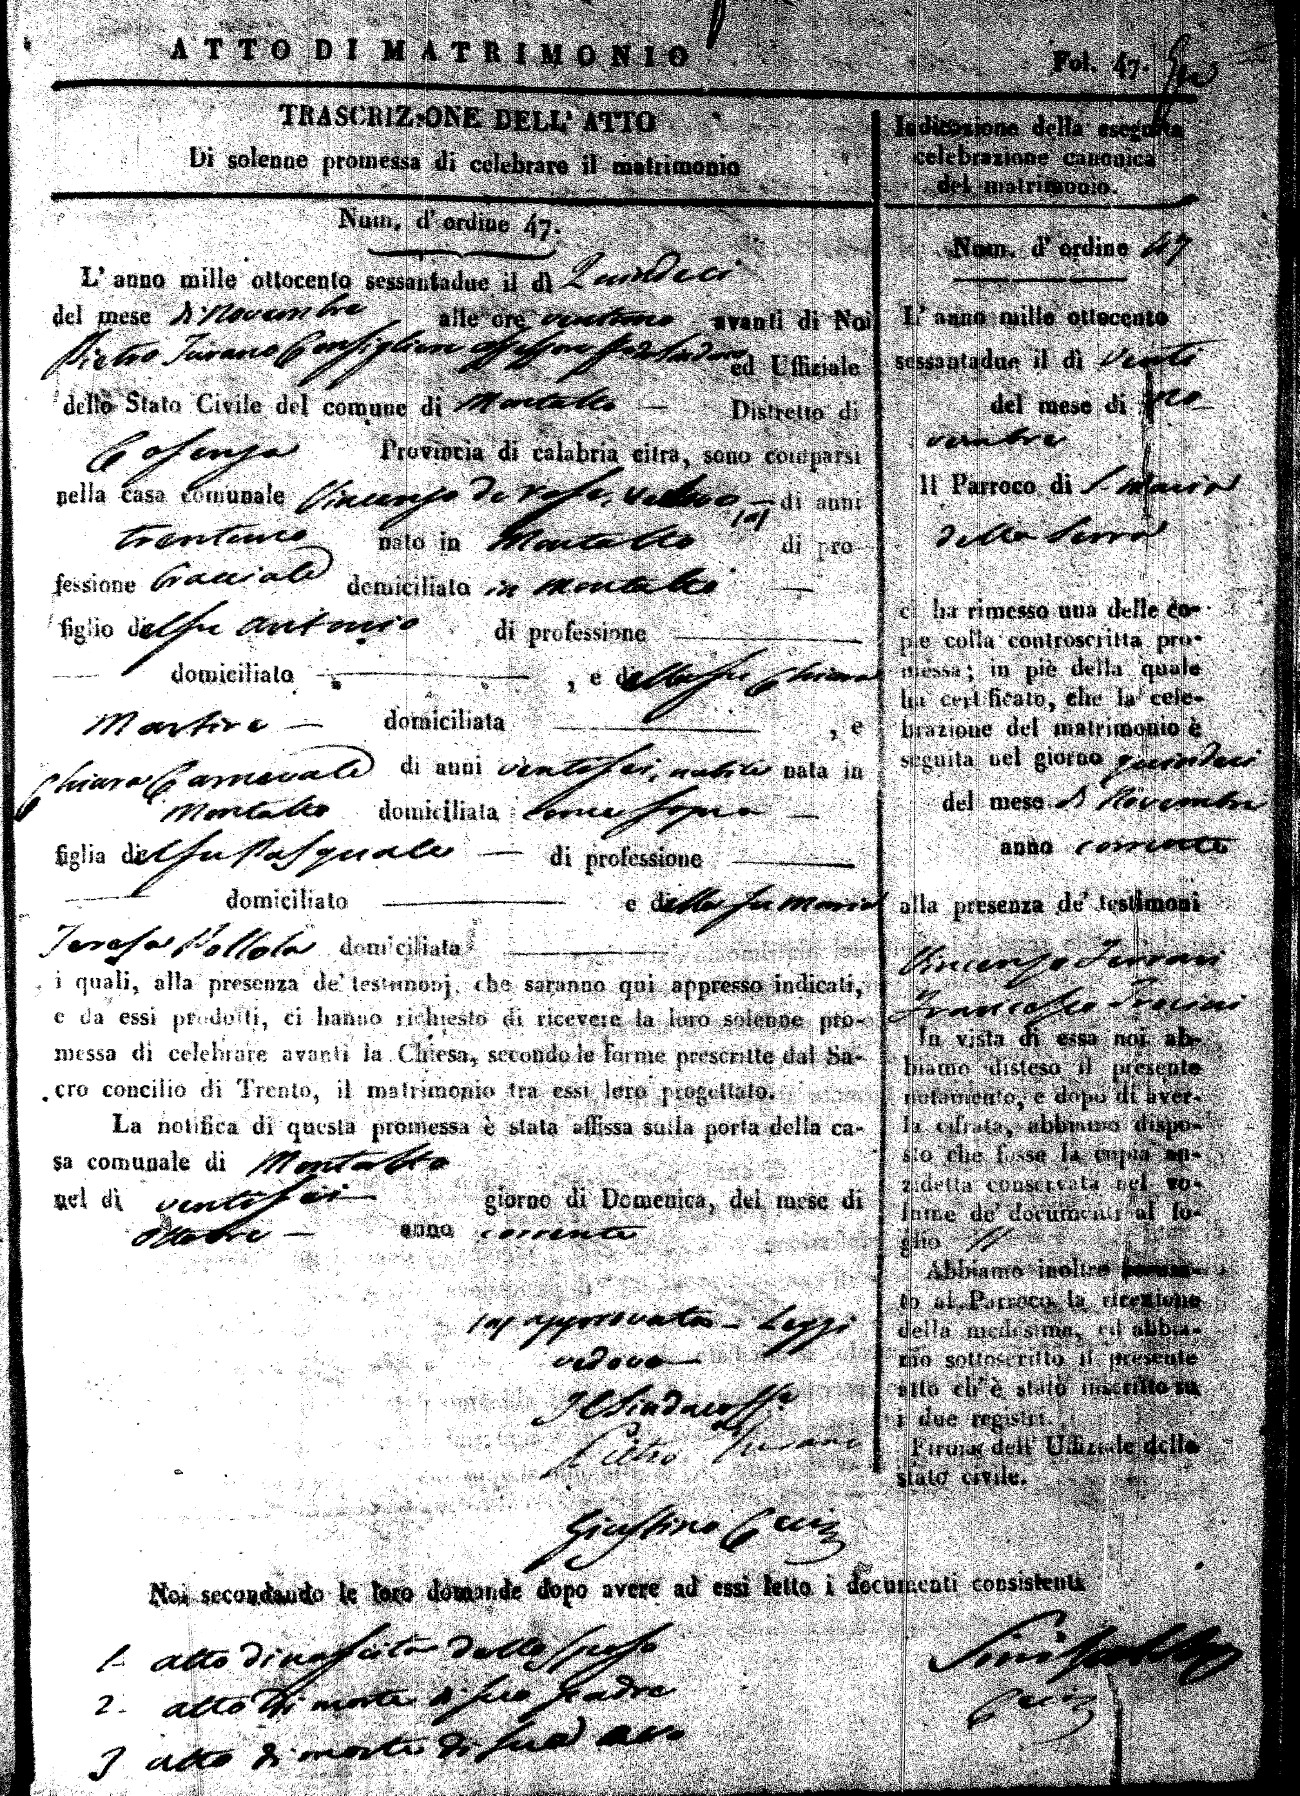 ATTO DI MATRIMONIO
Fol. 47.
TRASCRIZIONE DELL' ATTO
Di solenne promessa di celebrare il matrimonio
Num. d' ordine 47.
L' anno mille ottocento sessantadue il dì Quindeci
del mese di Novembre alle ore ventuno avanti di Noi
Pietro Turano Consigliere ed Uffiziale
dello Stato Civile del comune di Montalto — Distretto di
Cosenza Provincia di calabria citra, sono comparsi
nella casa comunale Vincenzo de Rose, — di anni
trentuno nato in Montalto di pro-
fessione domiciliato in Montalto —
figlio del fu Antonio di professione
domiciliato , e della fu Chiara
Martire — domiciliata , e
Chiara Carnevale di anni ventisei, nubile nata in
Montalto domiciliata come sopra —
figlia del fu Pasquale — di professione
domiciliato e della fu Maria
Teresa domiciliata
i quali, alla presenza de' testimonj, che saranno qui appresso indicati,
e da essi prodotti, ci hanno richiesto di ricevere la loro solenne pro-
messa di celebrare avanti la Chiesa, secondo le forme prescritte dal Sa-
cro concilio di Trento, il matrimonio tra essi loro progettato.
La notifica di questa promessa è stata affissa sulla porta della ca-
sa comunale di Montalto
nel dì ventisei giorno di Domenica, del mese di
Ottobre — anno corrente
(a) approvata — Leggi
vedovo —
Il Sindaco ff.e
Pietro Turano
Giustino
Indicazione della eseguita
celebrazione canonica
del matrimonio.
Num. d' ordine 47
L' anno mille ottocento
sessantadue il dì venti
del mese di No-
vembre
Il Parroco di S. Maria
della Serra
ci ha rimesso una delle co-
pie colla controscritta pro-
messa; in piè della quale
ha certificato, che la cele-
brazione del matrimonio è
seguita nel giorno quindeci
del mese di Novembre
anno corrente
alla presenza de' testimoni
Vincenzo Ferrari
Francesco
In vista di essa noi ab-
biamo disteso il presente
notamento, e dopo di aver-
la cifrata, abbiamo dispo-
sto che fosse la copia an-
zidetta conservata nel vo-
lume de' documenti al fo-
glio
Abbiamo inoltre
to al Parroco la ricezione
della medesima, ed abbia-
mo sottoscritto il presente
atto ch' è stato inscritto su
i due registri.
Firma dell' Uffiziale dello
stato civile.
Noi secondando le loro domande dopo avere ad essi letto i documenti consistenti
1- atto di nascita dello sposo
2- atto di morte di suo padre
3 atto di morte di suo avo